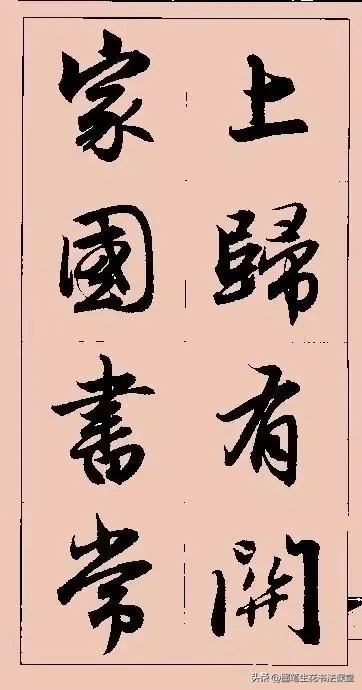 上歸有開
家國書常
头条 @墨笔生花书法课堂